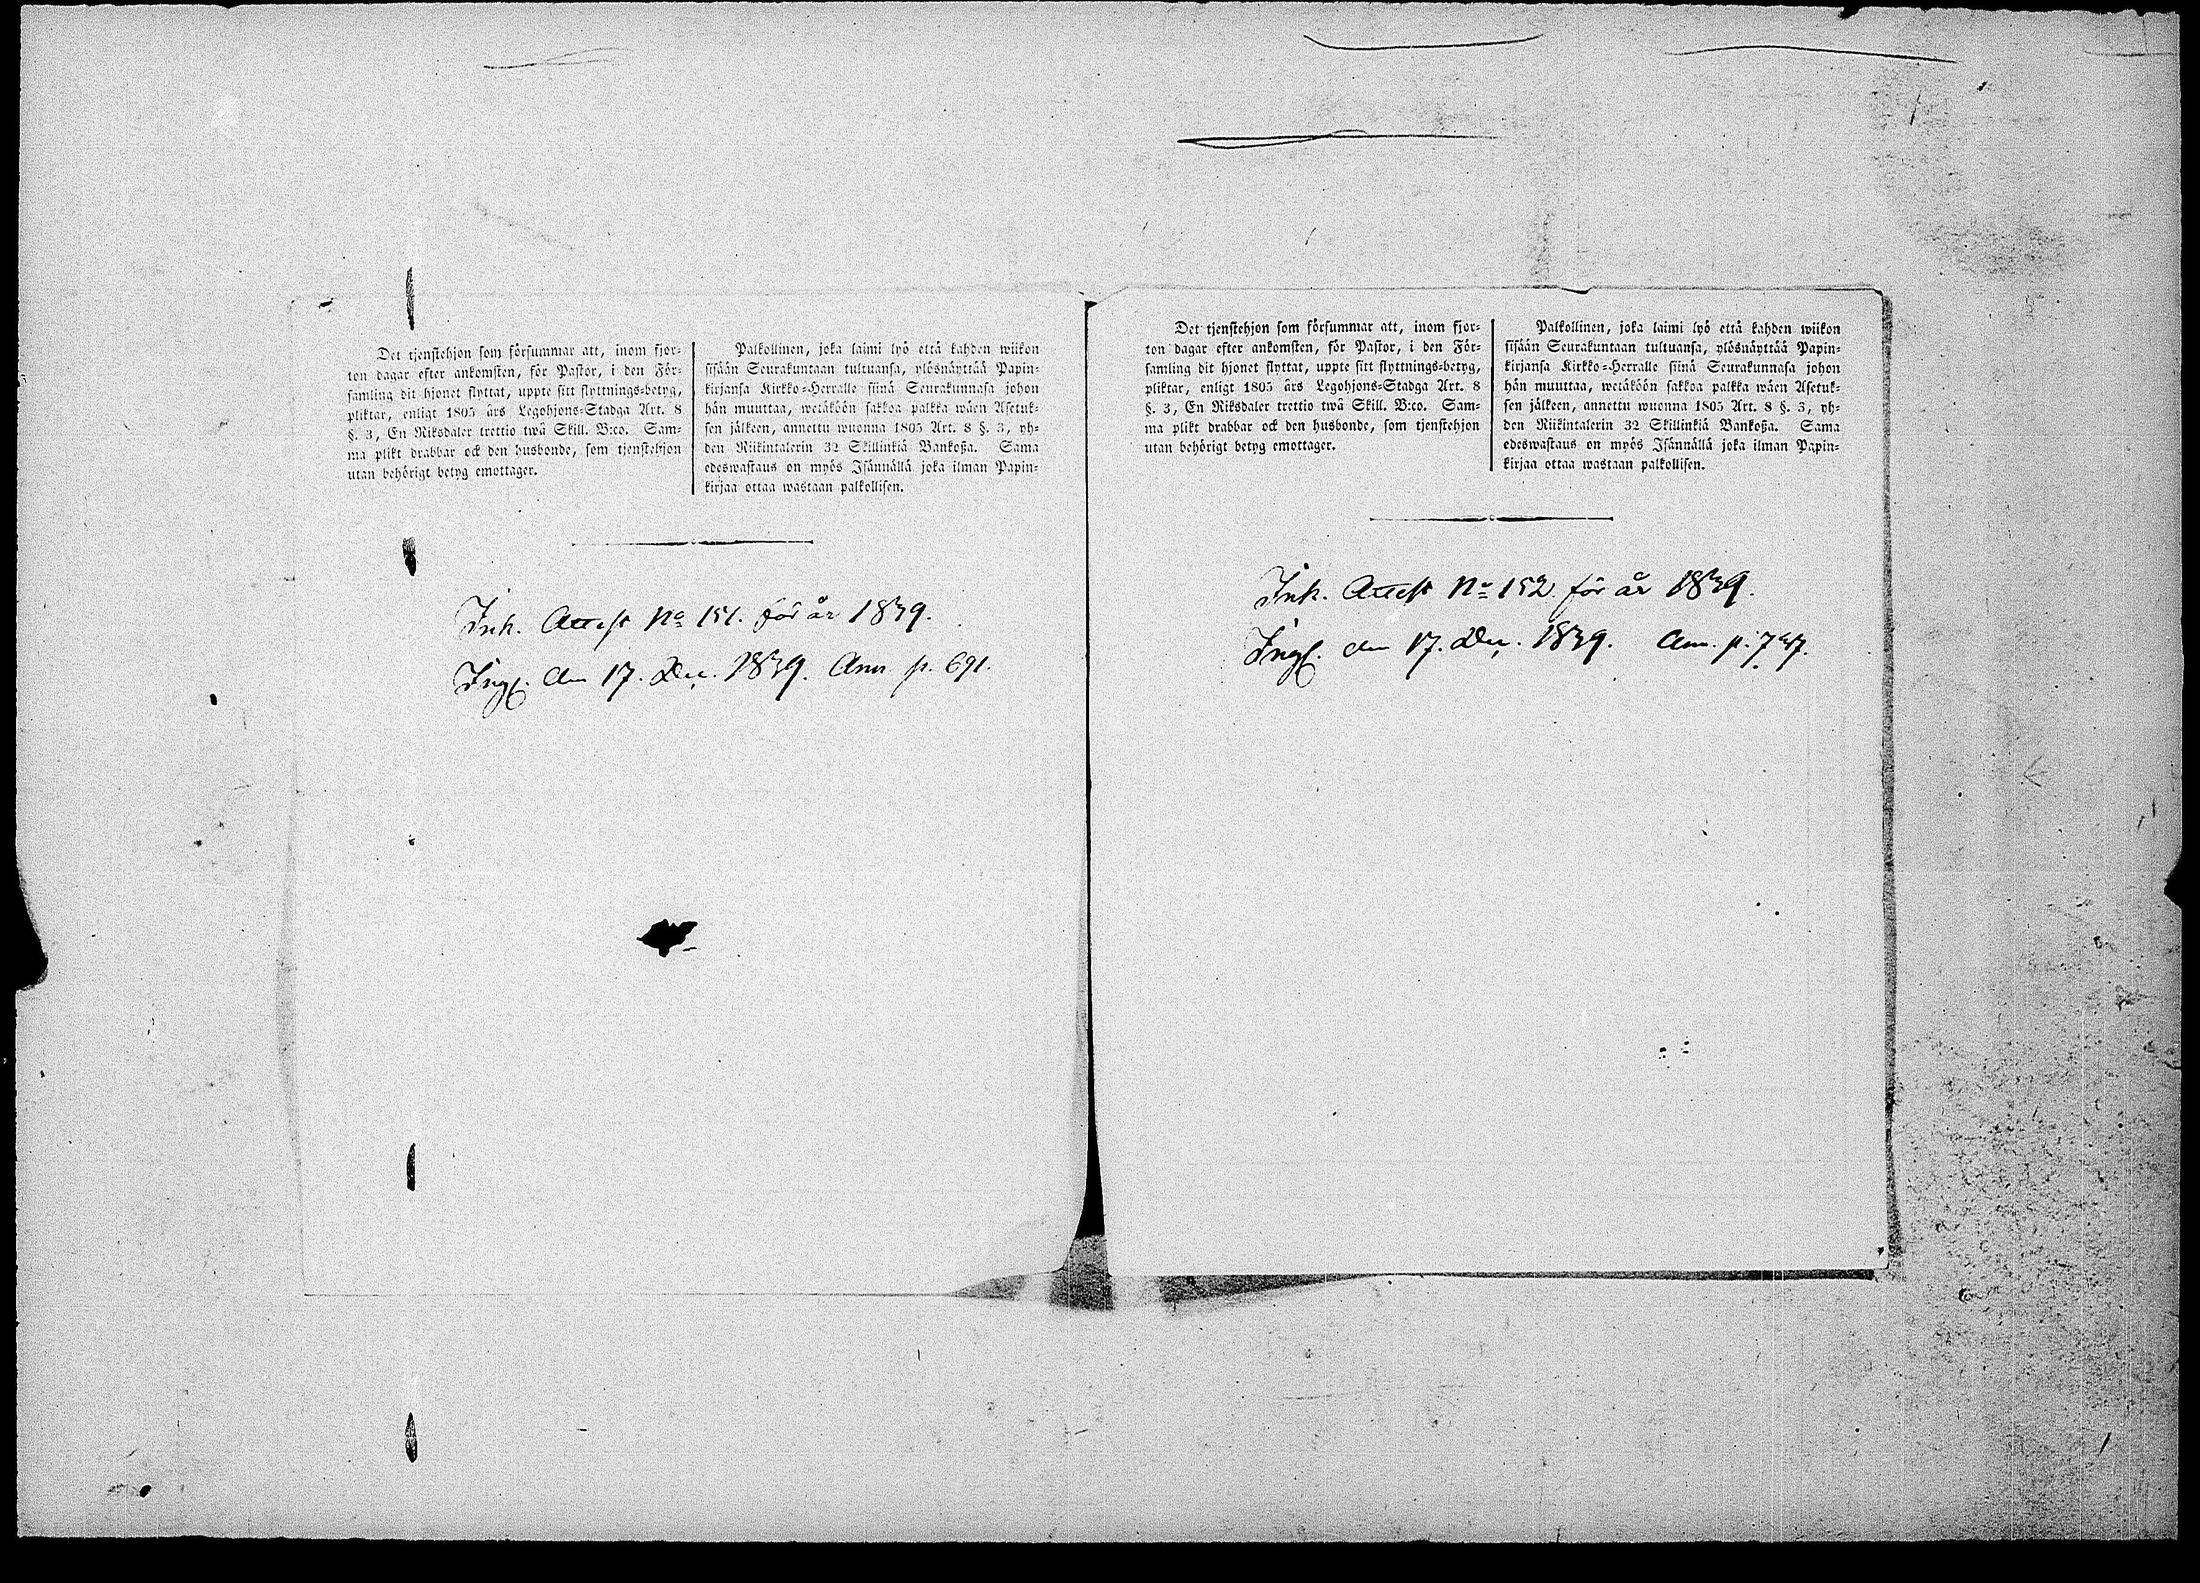 Det tjenstehjon som försummar att, inom fjor-
ton dagar efter ankomsten, för Pastor, i den För-
samling dit hjonet flyttat, uppte sitt flyttnings-betyg,
pliktar, enligt 1805 års Legohjons-Stadga Art. 8
§. 3, En Riksdaler trettio twå Skill. B:co. Sam-
ma plikt drabbar ock den husbonde, som tjenstehjon
utan behörigt betyg emottager.
Palkollinen, joka laimi lyö että kahden wiikon
sisään Seurakuntaan tultuansa, ylösnäyttää Papin-
kirjansa Kirkko-Herralle siinä Seurakunnasa johon
hän muuttaa, wetäköön sakkoa palkka wäen Asetuk-
sen jälkeen, annettu wuonna 1805 Art. 8 §. 3, yh-
den Riikintalerin 32 Skillinkiä Bankoßa. Sama
edeswastaus on myös Isännällä joka ilman Papin-
kirjaa ottaa wastaan palkollisen.
Ink. Attest No 151. för år 1839.
Ingf. den 17. Dec. 1839. Ann p. 691.
Det tjenstehjon som försummar att, inom fjor-
ton dagar efter ankomsten, för Pastor, i den För-
samling dit hjonet flyttat, uppte sitt flyttnings-betyg,
pliktar, enligt 1805 års Legohjons-Stadga Art. 8
§. 3, En Riksdaler trettio twå Skill. B:co. Sam-
ma plikt drabbar ock den husbonde, som tjenstehjon
utan behörigt betyg emottager.
Palkollinen, joka laimi lyö että kahden wiikon
sisään Seurakuntaan tultuansa, ylösnäyttää Papin-
kirjansa Kirkko-Herralle siinä Seurakunnasa johon
hän muuttaa, wetäköön sakkoa palkka wäen Asetuk-
sen jälkeen, annettu wuonna 1805 Art. 8 §. 3, yh-
den Riikintalerin 32 Skillinkiä Bankoßa. Sama
edeswastaus on myös Isännällä joka ilman Papin-
kirjaa ottaa wastaan palkollisen.
Ink. Attest No 152 för år 1839.
Ingf. den 17. Dec. 1839. Ann. p.